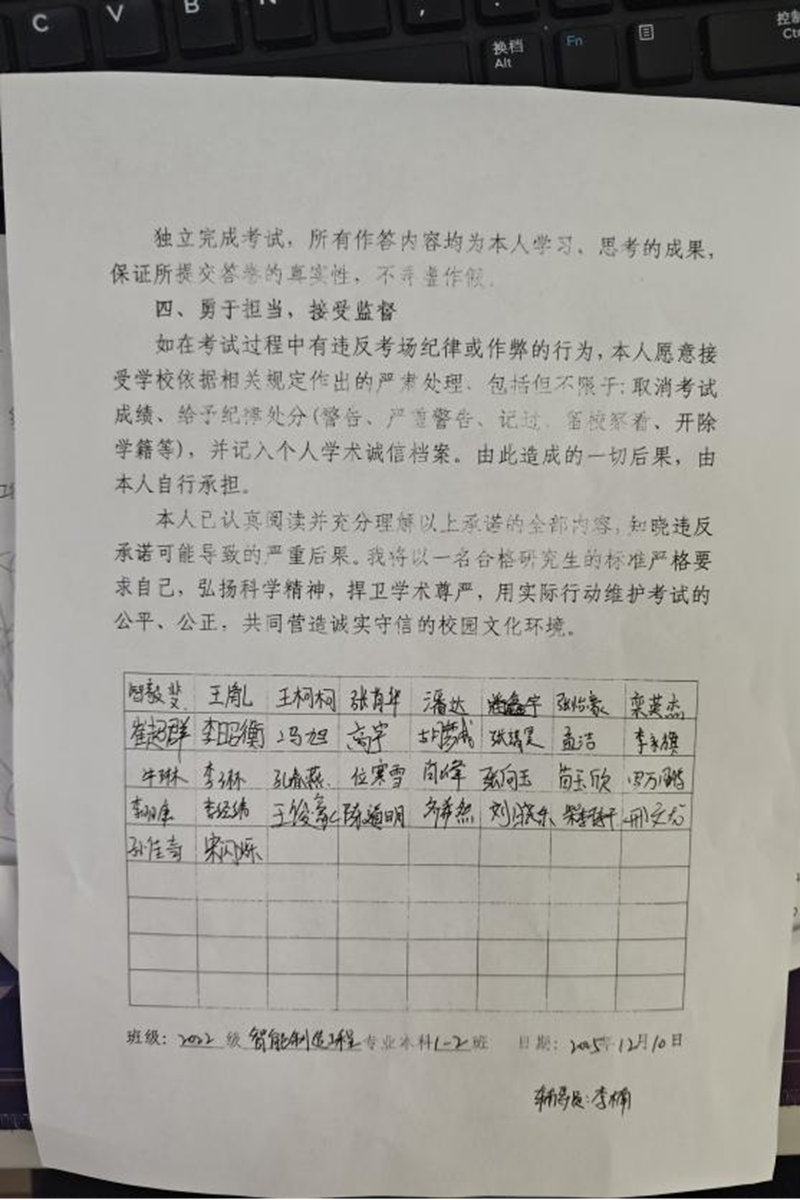 C V B N
换档 Alt Fn
独立完成考试，所有作答内容均为本人学习、思考的成果，
保证所提交答卷的真实性，不弄虚作假。
四、勇于担当，接受监督
如在考试过程中有违反考场纪律或作弊的行为，本人愿意接
受学校依据相关规定作出的严肃处理，包括但不限于：取消考试
成绩、给予纪律处分（警告、严重警告、记过、留校察看、开除
学籍等），并记入个人学术诚信档案。由此造成的一切后果，由
本人自行承担。
本人已认真阅读并充分理解以上承诺的全部内容，知晓违反
承诺可能导致的严重后果。我将以一名合格研究生的标准严格要
求自己，弘扬科学精神，捍卫学术尊严，用实际行动维护考试的
公平、公正，共同营造诚实守信的校园文化环境。
王胤 王柯柯 张育华 潘达 张怡豪 栾英杰
崔超群 李昭衡 冯旭 高宇 孟洁
牛琳 李琳 孔春燕 位寒雪 肖峰 张向玉 苟玉欣
李经纬 王俊豪 陈道明 邢文龙
孙佳奇 宋闪烁
班级：2022级 智能制造工程 专业本科1-2班 日期：2025年12月10日
辅导员：李楠